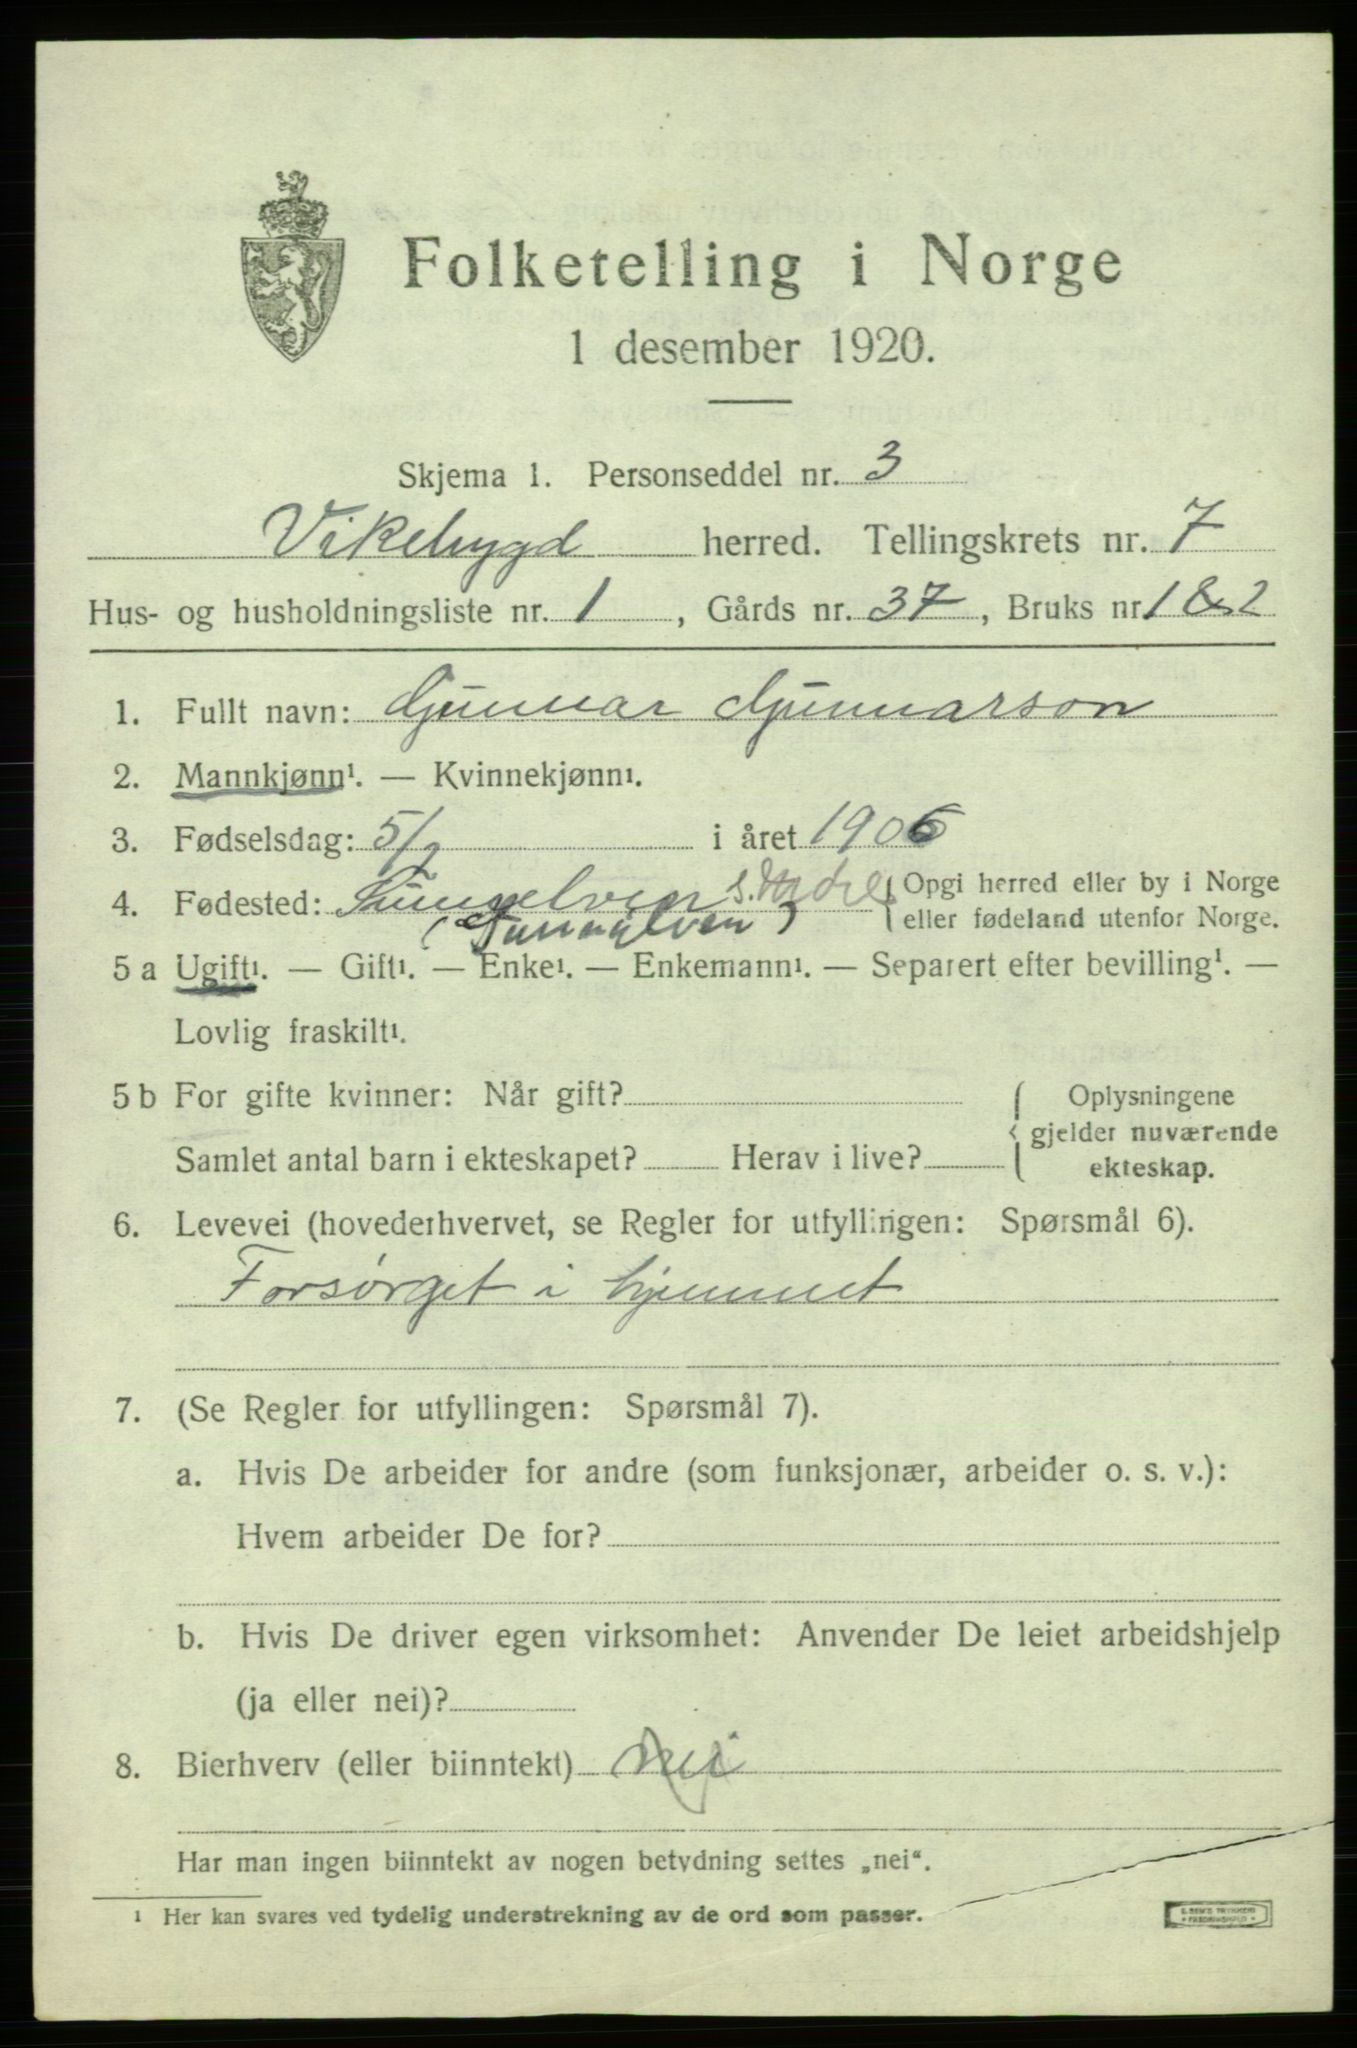 Folketelling i Norge
1 desember 1920.
Skjema 1. Personseddel nr. 3
Vikebygd herred. Tellingskrets nr. 7
Hus- og husholdningsliste nr. 1, Gårds nr. 37, Bruks nr. 1 & 2
1. Fullt navn: Gunnar Gunnarson
2. Mannkjønn¹. — Kvinnekjønn¹.
3. Fødselsdag: 5/2 i året 1906
4. Fødested: Sunnelven S. Møre { Opgi herred eller by i Norge
(Sunnylven) eller fødeland utenfor Norge.
5 a Ugift¹. — Gift¹. — Enke¹. — Enkemann¹. — Separert efter bevilling¹. —
Lovlig fraskilt¹.
5 b For gifte kvinner: Når gift? { Oplysningene
gjelder nuværende
Samlet antal barn i ekteskapet? Herav i live? ekteskap.
6. Levevei (hovederhvervet, se Regler for utfyllingen: Spørsmål 6).
Forsørget i hjemmet
7. (Se Regler for utfyllingen: Spørsmål 7).
a. Hvis De arbeider for andre (som funksjonær, arbeider o. s. v.):
Hvem arbeider De for?
b. Hvis De driver egen virksomhet: Anvender De leiet arbeidshjelp
(ja eller nei)?
8. Bierhverv (eller biinntekt) nei
Har man ingen biinntekt av nogen betydning settes „nei“.
¹ Her kan svares ved tydelig understrekning av de ord som passer.